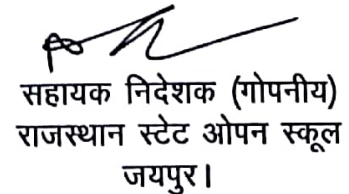 सहायक निदेशक (गोपनीय)
राजस्थान स्टेट ओपन स्कूल
जयपुर।